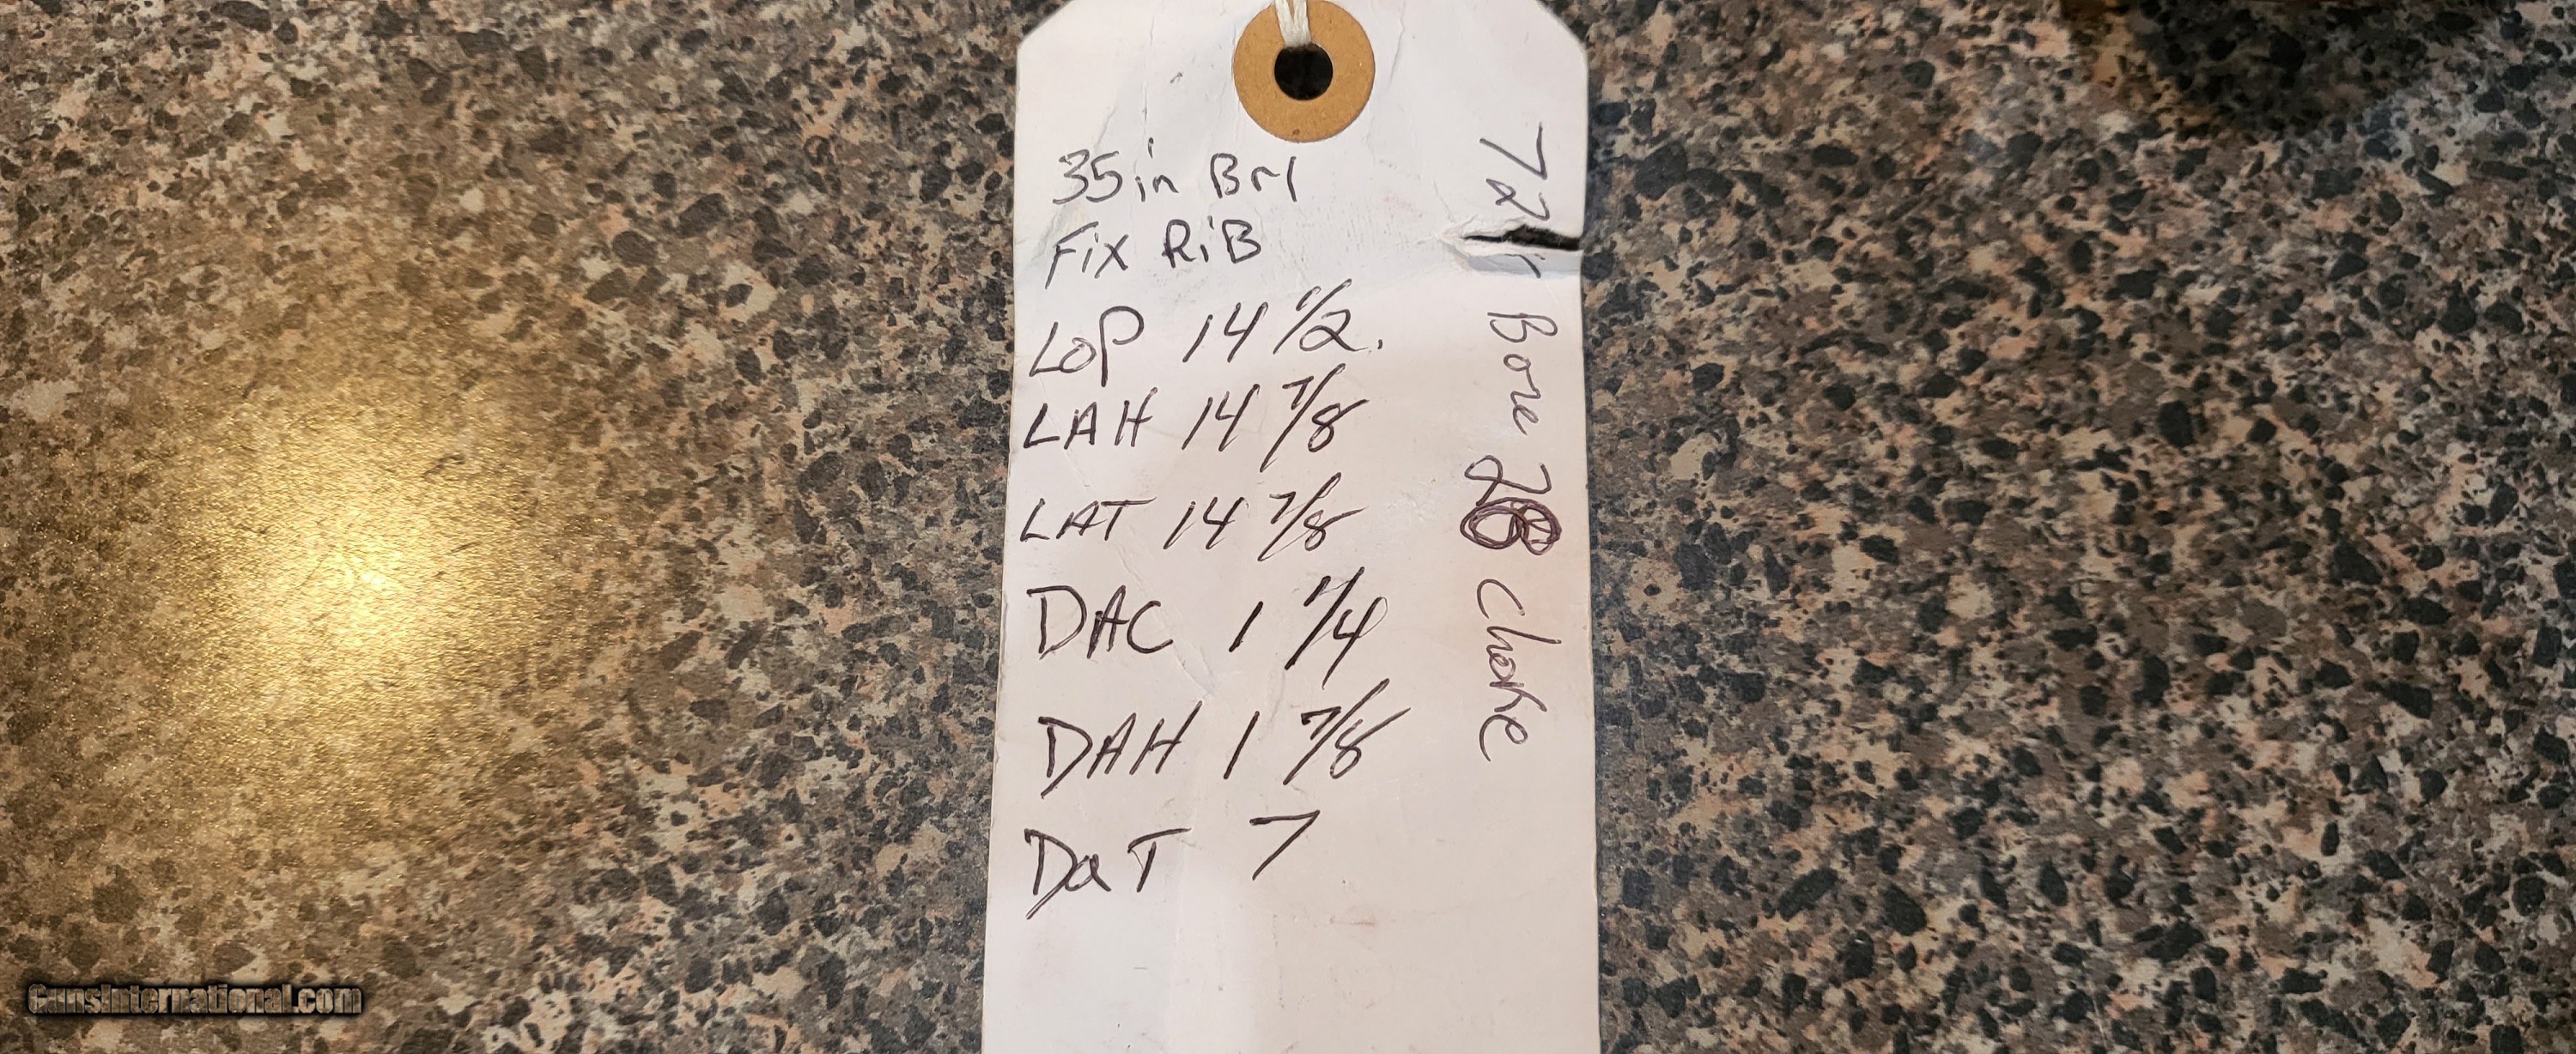 35in Brl
Fix RiB
LOP 14 1/2.
LAH 14 7/8
LAT 14 7/8
DAC 1 1/4
DAH 1 7/8
DaT 7
Bore 28 Choke
GunsInternational.com